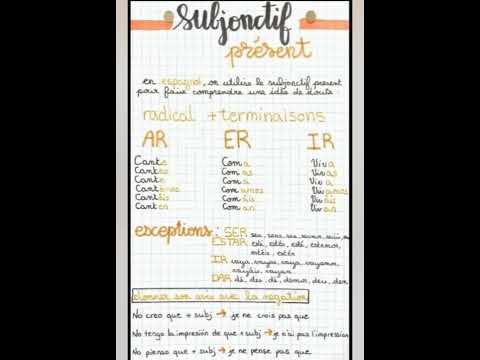 subjonctif
présent
en espagnol, on utilise le subjonctif present
pour faire comprendre une idée de doute.
radical + terminaisons
AR ER IR
Cante Coma Viva
Cantes Comas Vivas
Cante Coma Viva
Cantemos Comamos Vivamos
Cant Com Viv
Canten Coman Vivan
exceptions: SER sea, seas, sea, seamos,
ESTAR esté, estés, esté, estemos,
estéis, estén
IR vaya, vayas, vaya, vayamos,
vayáis, vayan
DAR dé, des, dé, demos, deis, den
donner son avis avec la negation
No creo que + subj → je ne crois pas que
No tengo la impresión de que + subj → je n'ai pas l'impression
No pienso que + subj → je ne pense pas que